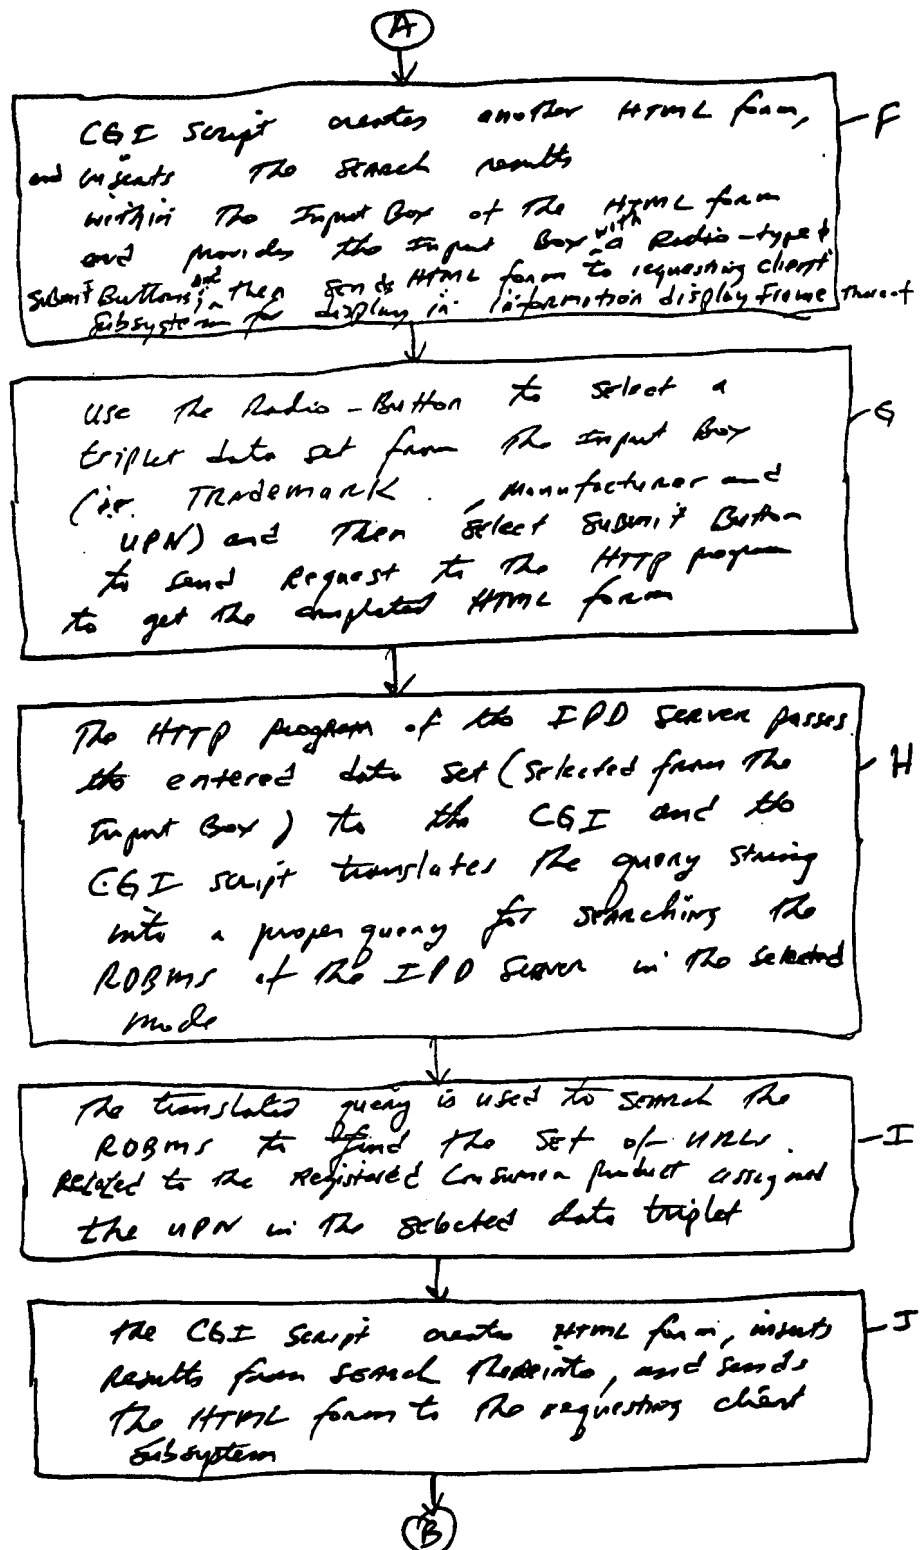 A
CGI Script creates another HTML form, F
and inserts The Search results
within The Input Box of The HTML form
and provides the Input Box with a Radio-type &
Submit Buttons, and then sends HTML form to requesting client
Subsystem for display in information display frame thereof
Use The Radio-Button to select a G
triplet data set from The Input Box
(ie. Trademark, Manufacturer and
UPN) and Then Select Submit Button
to send Request to The HTTP program
to get the completed HTML form
The HTTP program of the IPD Server passes
the entered data set (selected from The H
Input Box) to the CGI and the
CGI script translates The query string
into a proper query for searching The
RDBMS of The IPD Server in The selected
mode
The translated query is used to search The
RDBMS to find the set of URLs I
Related to the Registered Consumer product assigned
the UPN in The selected data triplet
the CGI Script creates HTML form, inserts J
Results from search thereinto, and sends
The HTML form to The requesting client
Subsystem
B